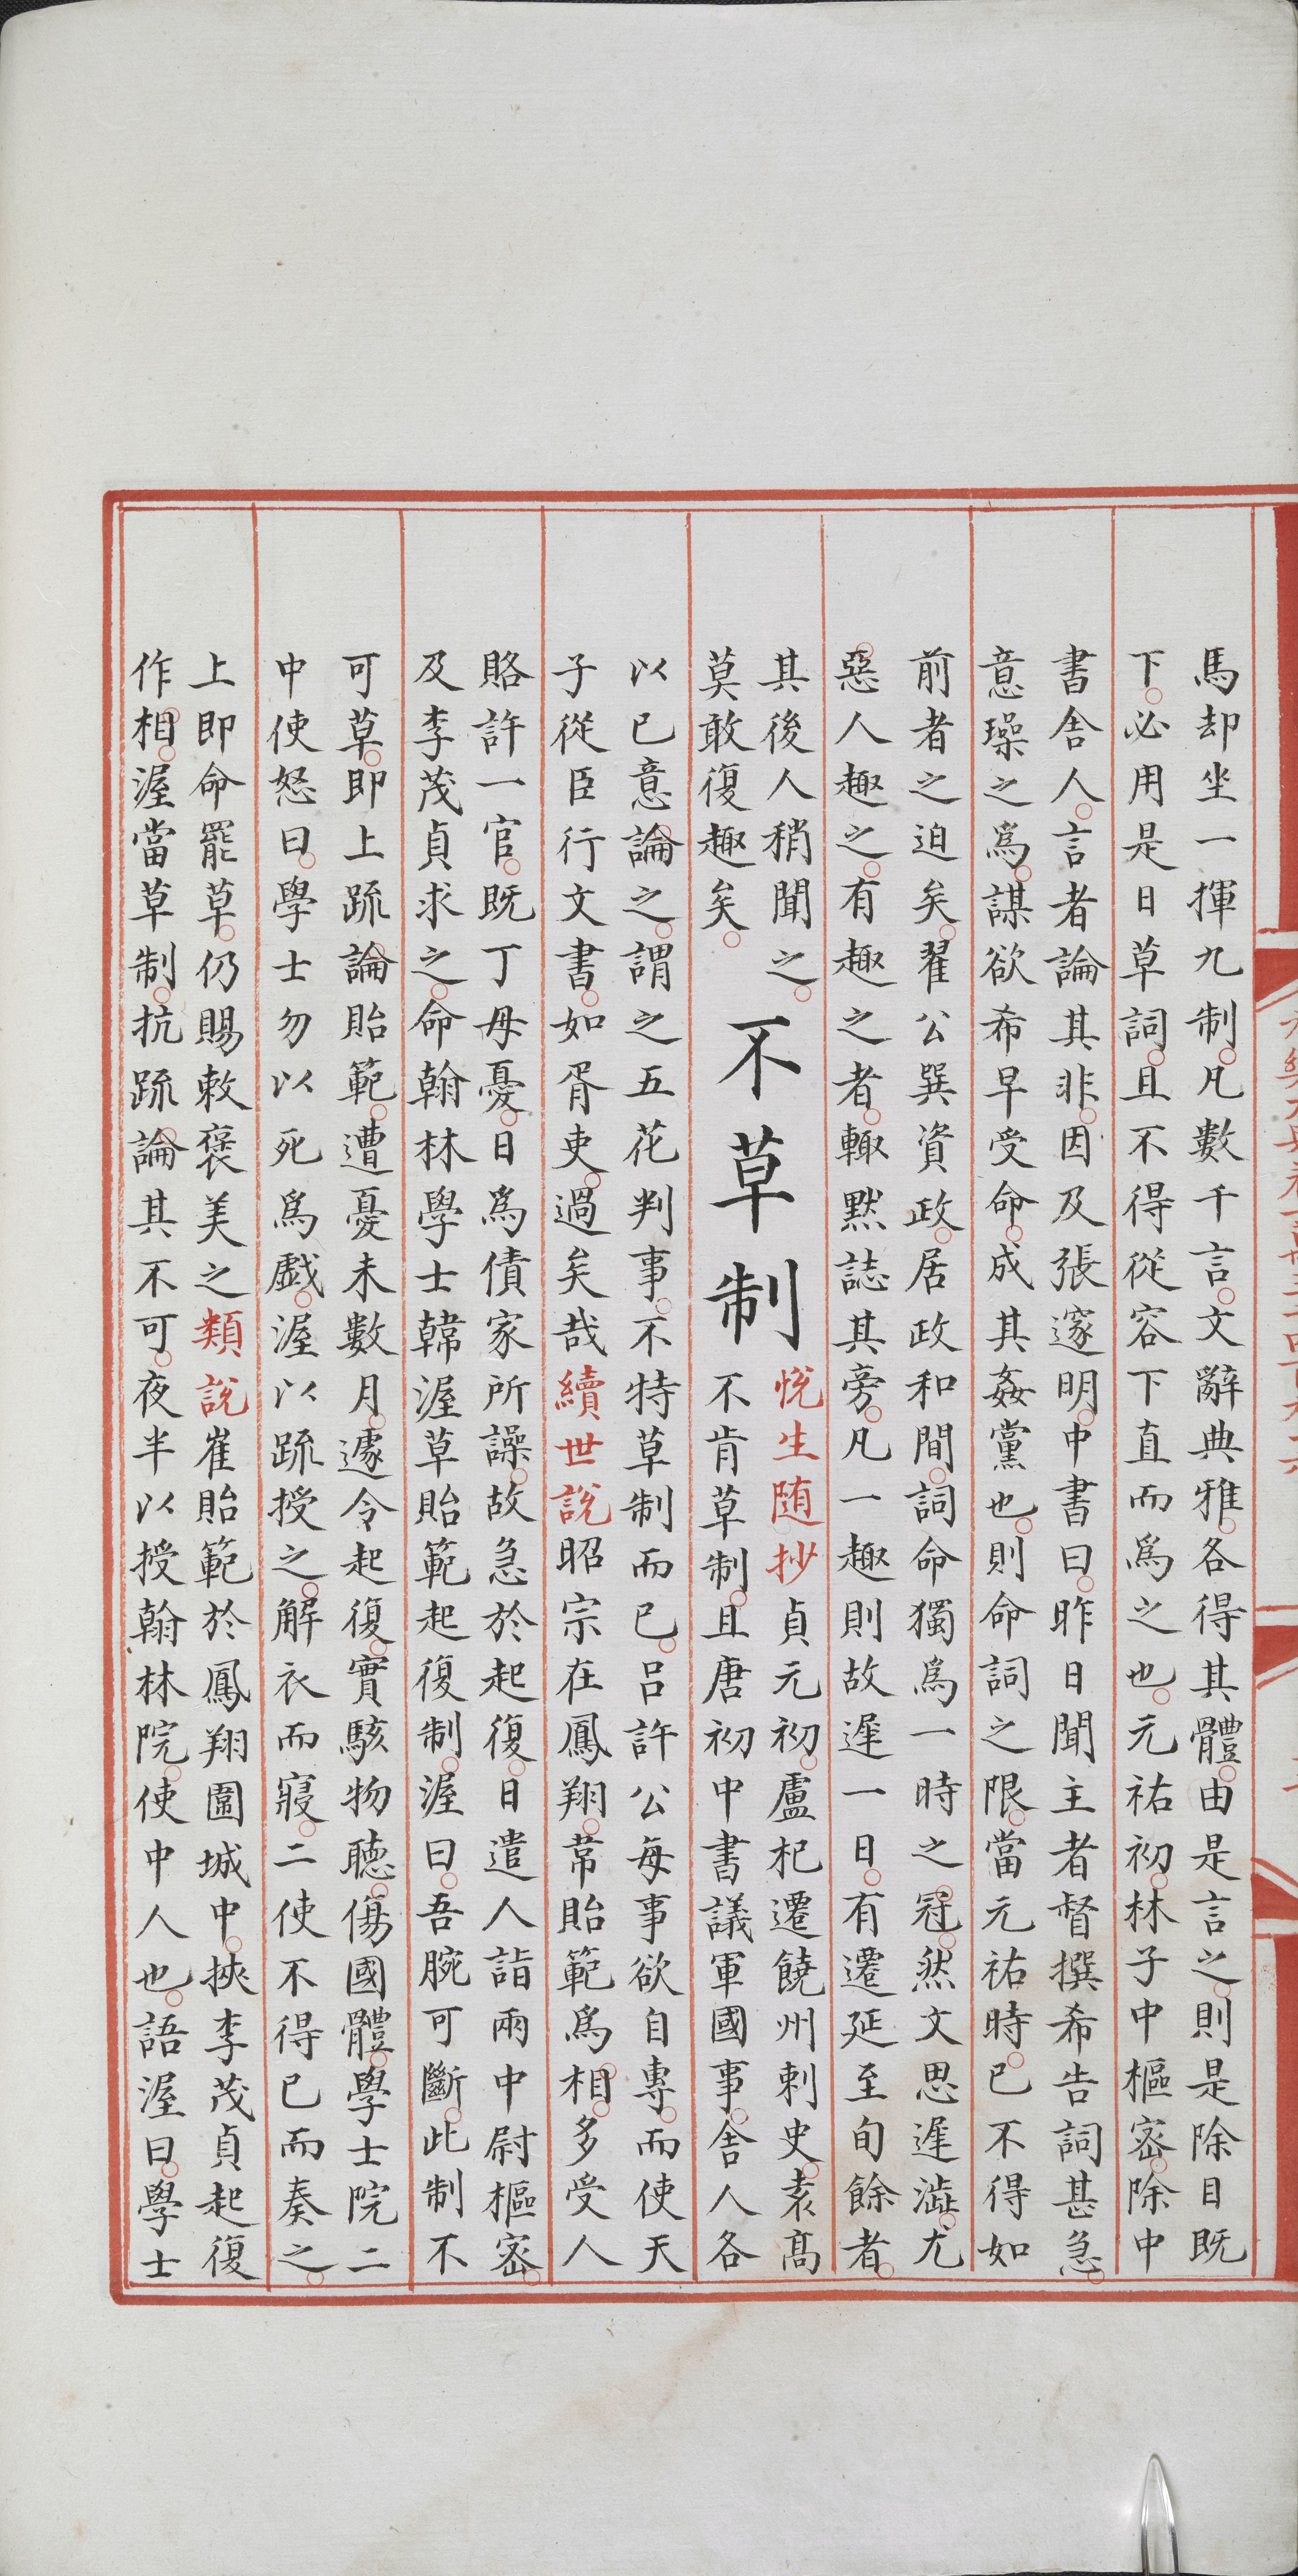 馬却坐一揮九制凡數千言文辭典雅各得其體由是言之則是除目既
下必用是日草詞且不得從容下直而爲之也元祐初林子中樞密除中
書舍人言者論其非因及張邃明中書曰昨日聞主者督撰希告詞甚急
意璪之爲謀欲希早受命成其姦黨也則命詞之限當元祐時已不得如
前者之迫矣翟公巽資政居政和間詞命獨爲一時之冠然文思遲澁尤
惡人趣之有趣之者輙黙誌其旁凡一趣則故遲一日有遷延至旬餘者
其後人稍聞之
莫敢復趣矣
不草制
悅生随抄貞元初盧杞遷饒州刺史袁髙
不肯草制且唐初中書議軍國事舍人各
以已意論之謂之五花判事不特草制而已吕許公每事欲自專而使天
子從臣行文書如胥吏過矣哉續世說昭宗在鳳翔常貽範爲相多受人
賂許一官既丁母憂日爲債家所譟故急於起復日遣人詣兩中尉樞密
及李茂貞求之命翰林學士韓渥草貽範起復制渥曰吾腕可斷此制不
可草即上疏論貽範遭憂未數月遽令起復實駭物聽傷國體學士院二
中使怒曰學士勿以死爲戯渥以疏授之解衣而寢二使不得已而奏之
上即命罷草仍賜敕褒美之類說崔貽範於鳳翔圍城中挾李茂貞起復
作相渥當草制抗疏論其不可夜半以授翰林院使中人也語渥曰學士